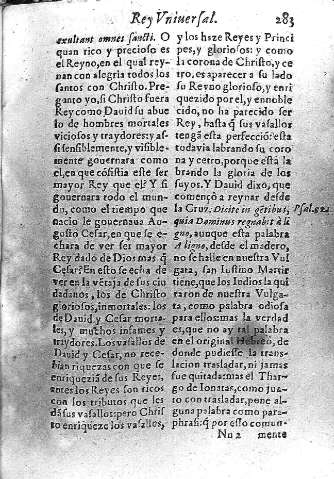 Rey Vniuersal. 283
exultant omnes sancti. O
quan rico y precioso es
el Reyno, en el qual rey-
nan con alegria todos los
santos con Christo. Pre-
gantoyo, si Christo fuera
Rey como Dauid su abue
lo de hombres mortales
viciosos y traydores: y as-
si sensiblemente, y visible-
mente gouernara como
el, en que cõsistia este ser
mayor Rey que el? Y si
gouernara todo el mun-
do, como el tiempo que
nacio le gouernaua Au-
gusto Cesar, en que se e-
chara de ver ser mayor
Rey dado de Dios mas q̃
Cesar? En esto se echa de
ver en la vẽtaja de sus ciu
dadanos, los de Christo
gloriosos, inmortales: los
de Dauid, y Cesar morta-
les, y muchos infames y
traydores. Los vasallos de
Dauid y Cesar, no rece-
bian riquezas con que se
enriqueziã de sus Reyes,
antes los Reyes son ricos
con los tributos que les
dã sus vasallos: pero Chris
to enriqueze los vasallos,
y los haze Reyes y Princi
pes, y gloriosos: y como
la corona de Christo, y ce
tro, es aparecer a su lado
su Reyno glorioso, y enri
quezido por el, y ennoble
cido, no ha parecido ser
Rey, hasta q̃ sus vasallos
tengã esta perfecciõ: està
todauia labrando su coro
na y cetro, porque està la
brando la gloria de los
suyos. Y Dauid dixo, que
començò a reynar desde
la Cruz. Dicite in gẽtibus,
quia Dominus regnauit à li
gno, aunque esta palabra
A ligno, desde el madero,
no se halle en nuestra Vul
gata, san Iustino Martir
tiene, que los Iudios la qui
taron de nuestra Vulga-
ta, como palabra odiosa
para ellos: mas la verdad
es, que no ay tal palabra
en el original Hebreo, de
donde pudiesse la trans-
lacion trasladar, ni jamas
fue quitada: mas el Thar-
go de Ionatas, como jun-
to con trasladar, pone al-
guna palabra como para-
phrasi: q̃ por esto comun-
Nn 2 mente